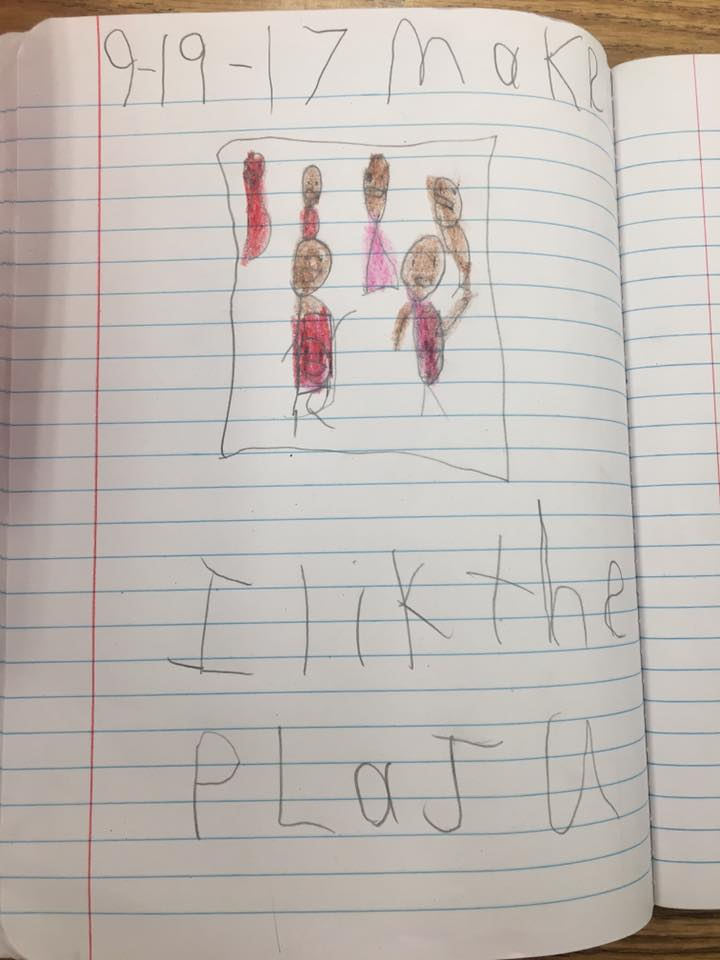 9-19-17 Make
I lik the
PLaJ U